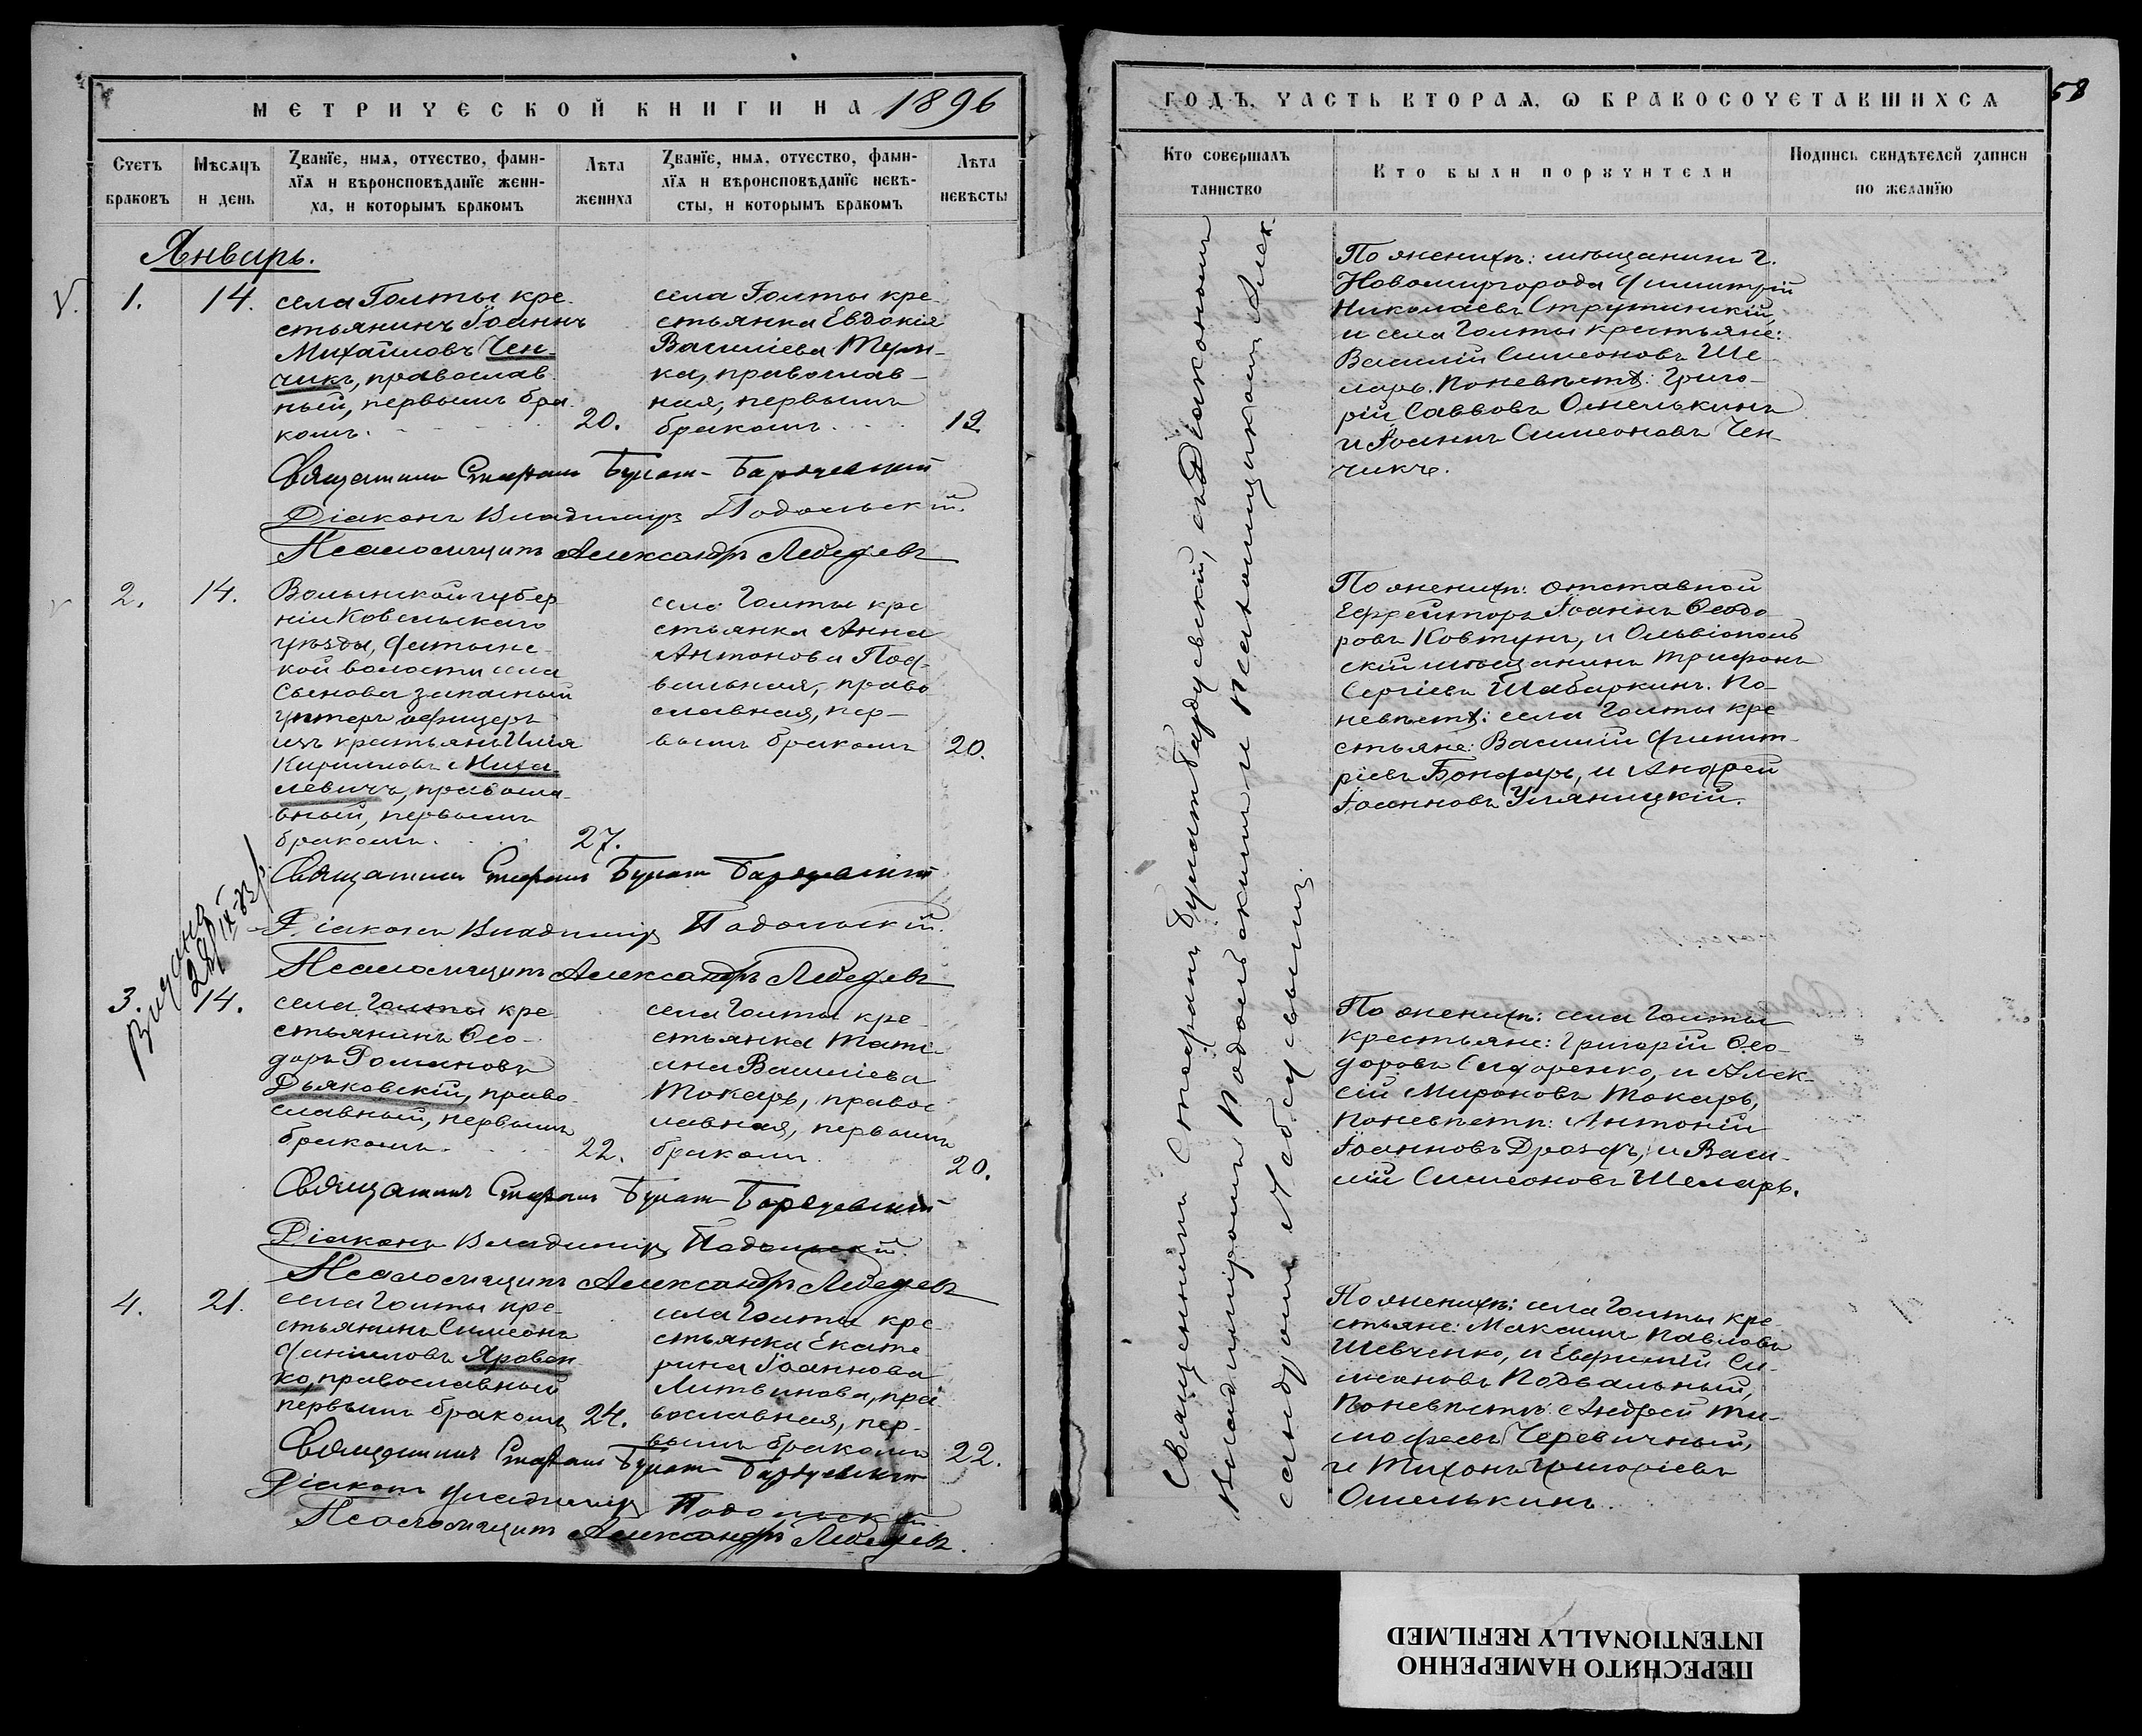 МЕТРИЧЕСКОЙ КНИГИ НА 1896
Счетъ браковъ
Мѣсяцъ и день
Званіе, имя, отчество, фами-
лія и вѣроисповѣданіе жени-
ха, и которымъ бракомъ
Лѣта жениха
Званіе, имя, отчество, фами-
лія и вѣроисповѣданіе невѣ-
сты, и которымъ бракомъ
Лѣта невѣсты
Январь.
1.
14.
села Голты кре-
стьянинъ Іоаннъ
Михайловъ Чен-
чикъ, православ-
ный, первымъ бра-
комъ.
20.
села Голты кре-
стьянка Евдокія
Василіева
ка, православ-
ная, первымъ
бракомъ
19.
Священникъ Стефанъ Булат-Бардусевскій
Діаконъ Владиміръ Подольскій.
Псаломщикъ Александръ Лебедевъ
2.
14.
Волынской губер-
ніи Ковельскаго
уѣзда,
кой волости села
запасный
унтеръ офицеръ
изъ крестьянъ Илія
Кирилловъ Миха-
левичъ, правосла-
вный, первымъ
бракомъ.
27.
села Голты кре
стьянка Анна
Антонова Под-
вальная, право
славная, пер-
вымъ бракомъ
20.
Священникъ Стефанъ Булат Бардусевскій
Діаконъ Владиміръ Подольскій.
Псаломщикъ Александръ Лебедевъ
Видано
28/IX-23
3.
14.
села Голты кре-
стьянинъ Ѳео-
доръ Романовъ
Дьяковскій, право-
славный, первымъ
бракомъ.
22.
села Голты кре-
стьянка Тати-
ана Василіева
Токарь, правос
лавная, первымъ
бракомъ.
20.
Священникъ Стефанъ Булат Бардусевскій
Діаконъ Владиміръ Подольскій.
Псаломщикъ Александръ Лебедевъ
4.
21.
села Голты кре-
стьянинъ Симеонъ
Даніиловъ Яровен-
ко, православный
первымъ бракомъ
24.
села Голты кре-
стьянка Екате
рина Іоаннова
Литвинова, пра-
вославная, пер-
вымъ бракомъ
22.
Священникъ Стефанъ Булат Бардусевскій
Діаконъ Владиміръ Подольскій.
Псаломщикъ Александръ Лебедевъ.
ГОДЪ, ЧАСТЬ ВТОРАЯ, О БРАКОСОЧЕТАВШИХСЯ
58
Кто совершалъ
таинство
Кто были поручители
Подпись свидѣтелей записи
по желанію
Священникъ Стефанъ Булат Бардусевскій, съ Діакономъ
Владиміромъ Подольскимъ и Псаломщикомъ Алек-
сандромъ Лебедевымъ.
По женихѣ: мѣщанинъ г.
Новомиргорода Димитрій
Николаевъ Струтинскій,
и села Голты крестьяне:
Василій Симеоновъ Ше-
ларь. По невѣстѣ: Григо-
рій Саввовъ Омелькинъ
и Іоаннъ Симеоновъ Чен-
чикъ.
По женихѣ: отставной
Ефрейторъ Іоаннъ Ѳеодо
ровъ Ковтунъ, и Ольвіополь
скій мѣщанинъ Трифонъ
Сергіевъ Шабаркинъ. По-
невѣстѣ: села Голты кре
стьяне: Василій Димит-
ріевъ Бондарь, и Андрей
Іоанновъ Уляницкій.
По женихѣ: села Голты
крестьяне: Григорій Ѳео-
доровъ Сидоренко, и Алек-
сій Мироновъ Токарь,
по невѣстѣ: Антоній
Іоанновъ Дроздъ, и Васи-
лій Симеоновъ Шеларь.
По женихѣ: села Голты кре-
стьяне: Максимъ Павловъ
Шевченко, и Евфимій Си-
меоновъ Подвальный,
По невѣстѣ: Андрей Ти-
мофеевъ Черевичный,
и Тихонъ Григоріевъ
Омелькинъ.
ПЕРЕСНЯТО НАМЕРЕННО
INTENTIONALLY REFILMED